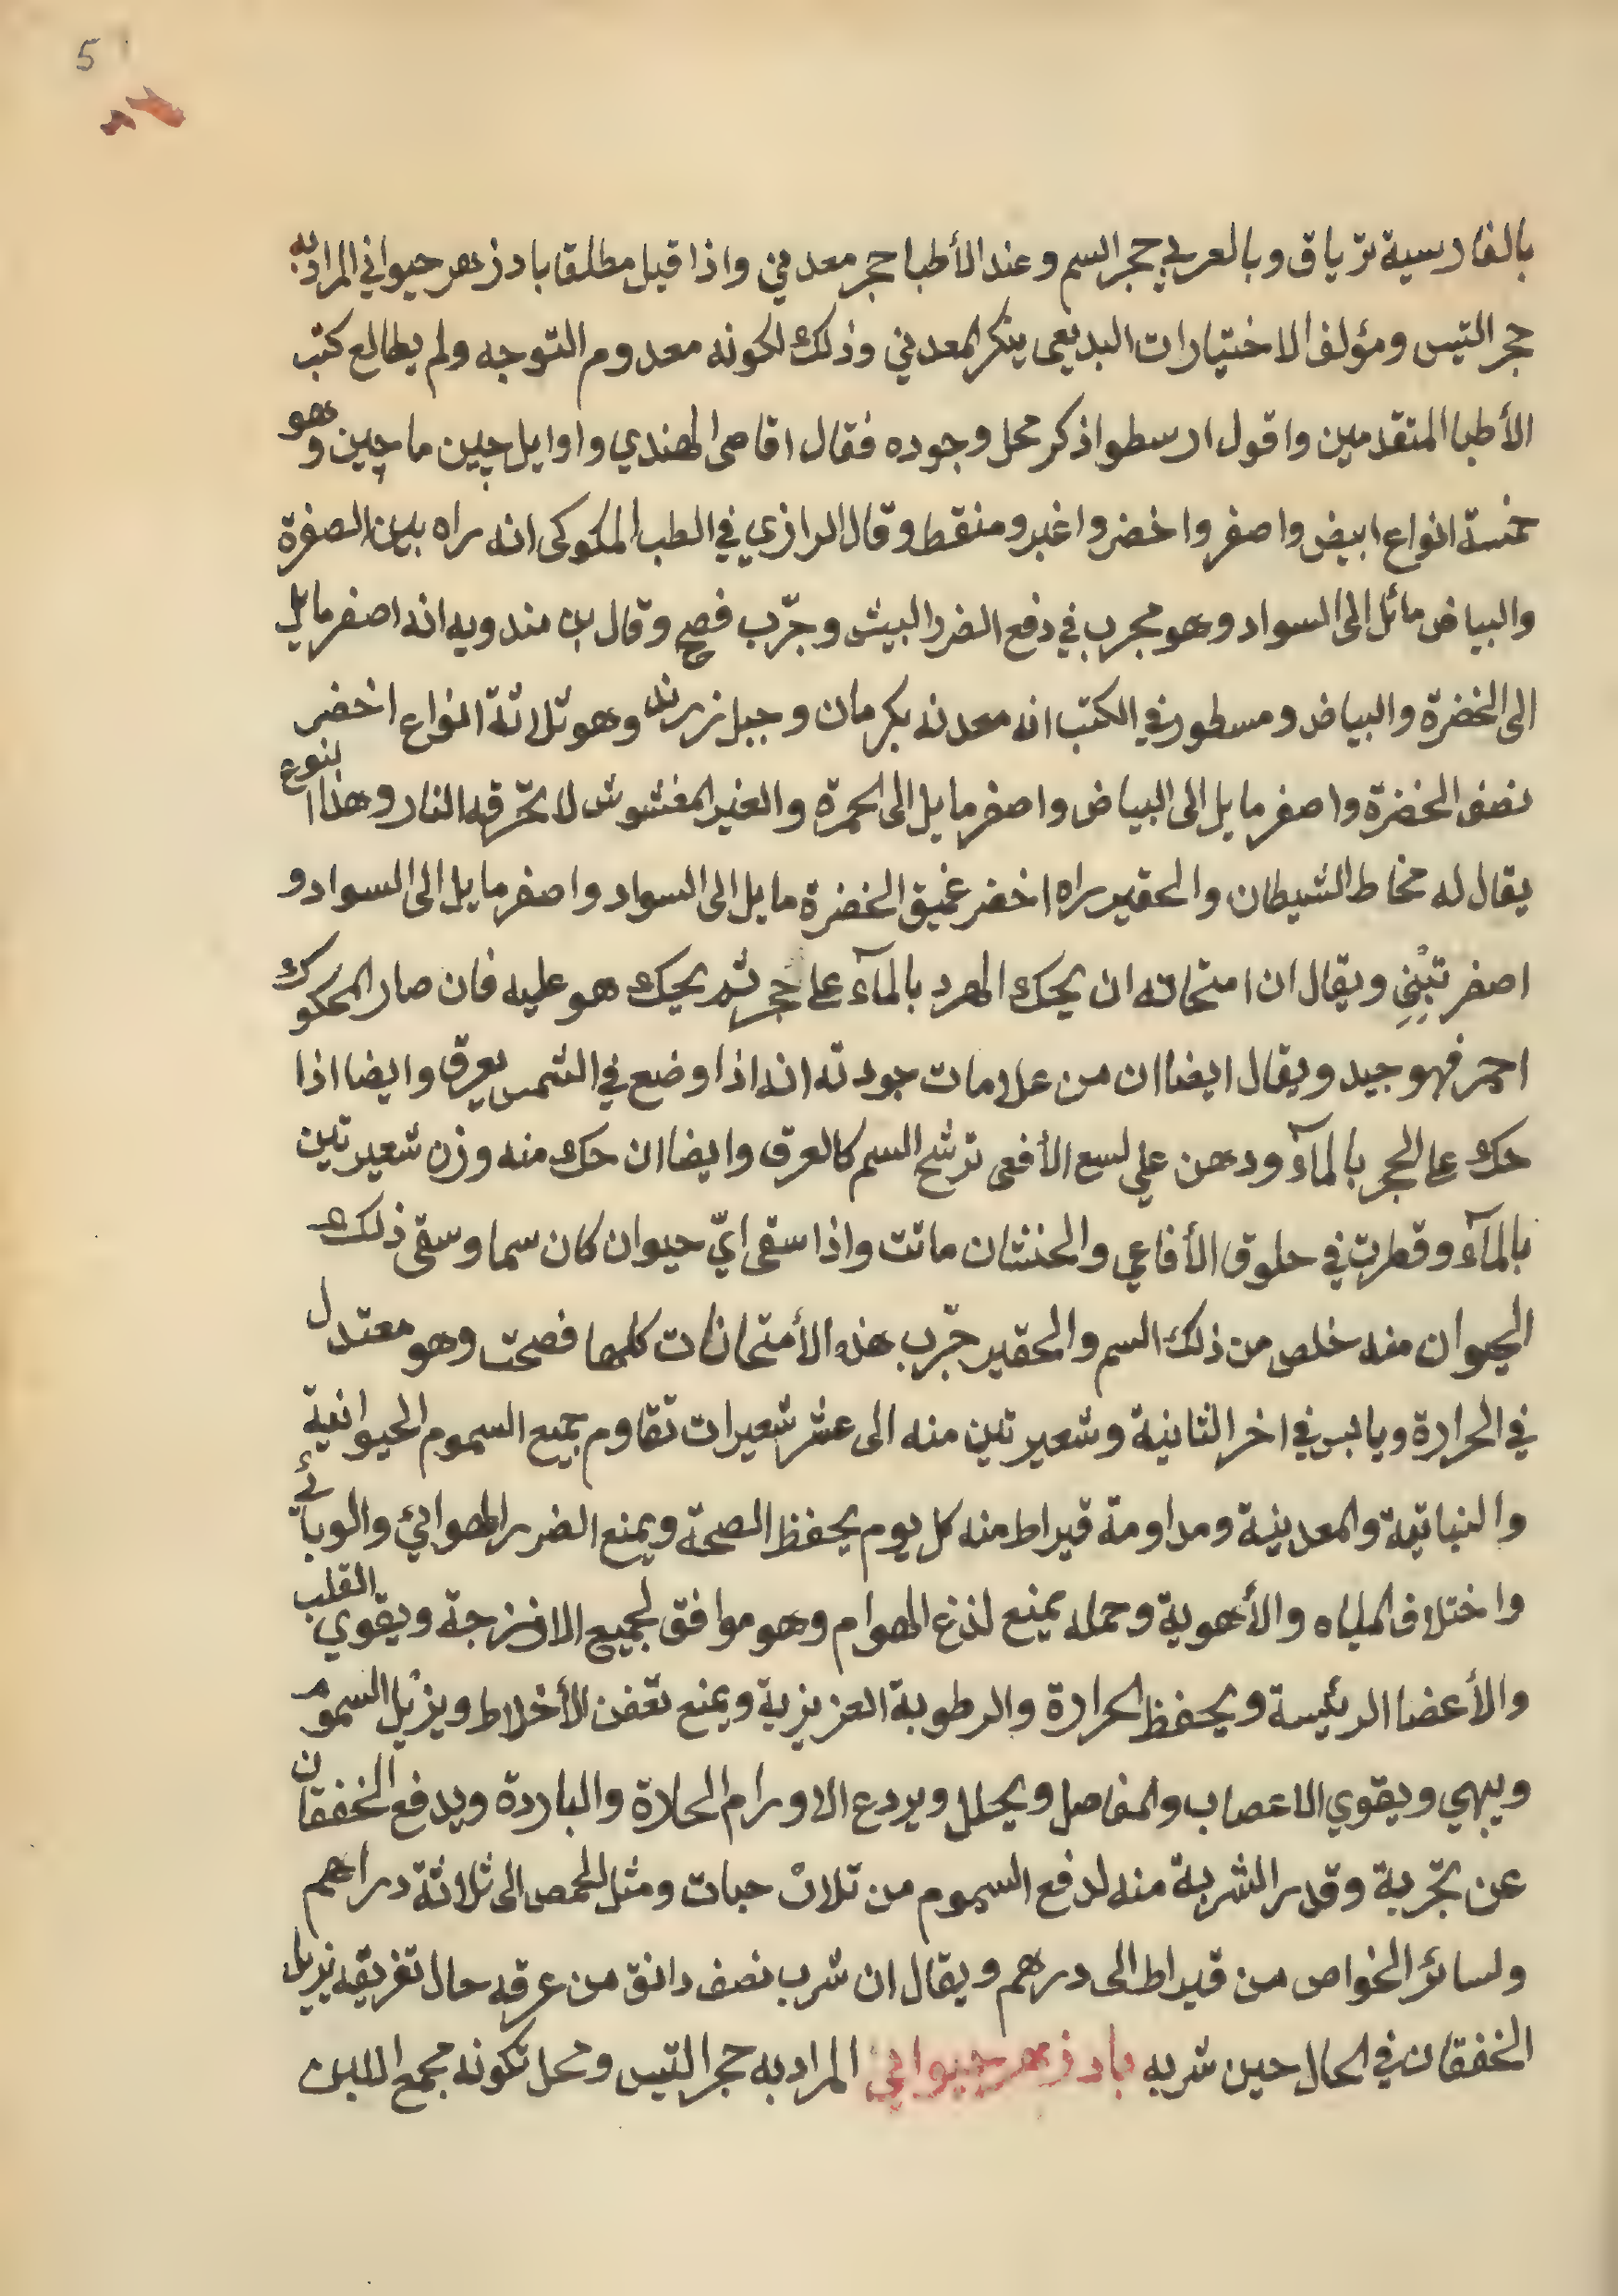 5
بالفارسية ترياق وبالعربي حجر السم وعند الأطبا حجر معدني واذا قيل مطلقا بادزهر حيواني المراد به
حجر التيس ومؤلف الاختيارات البديعى ينكر المعدني وذلك لكونه معدوم التوجه ولم يطالع كتب
الأطبا المتقدمين واقول ارسطو اذكر محل وجوده فقال اقاصى الهندي واوايل چين ماچين وهو
خمسة انواع ابيض واصفر واخضر واغبر ومنقط وقال الرازي في الطب الملوكى انه راه بين الصفرة
والبياض مائل الى السواد وهو مجرب في دفع الضرر البيش وجرّب فصح وقال بن مندويه انه اصفر مايل
الى الخضرة والبياض ومسطور في الكتب انه معدنه بكرمان وجبل زرند وهو ثلاثة انواع اخضر
نصف الخضرة واصفر مايل الى البياض واصفر مايل الى الحمرة والغير المغشوش لا تحرقه النار وهذا النوع
يقال له مخاط الشيطان والحقير راه اخضر غميق الخضرة مايل الى السواد واصفر مايل الى السواد و
اصفر تبْنِي ويقال ان امتحانه ان يحك الهرد بالمآء على حجر ثم يحك هو عليه فان صار المحكوك
احمر فهو جيد ويقال ايضا ان من علامات جودته انه اذا وضع في الشمس يعرق وايضا اذا
حك على الحجر بالمآء ودهن علي لسع الأفعى ترشح السم كالعرق وايضا ان حك منه وزن شعيرتين
بالمآء وقطرت في حلوق الأفاعي والحنشان ماتت واذا سقى ايّ حيوان كان سما وسقى ذلك
الحيوان منه خلص من ذلك السم والحقير جرّب هذه الأمتحانات كلها فصحت وهو معتدل
في الحرارة ويابس في اخر الثانية وشعيرتين منه الى عشر شعيرات تقاوم جميع السموم الحيوانية
والنباتية والمعدينة ومداومة قيراط منه كل يوم يحفظ الصحة ويمنع الضرر الهوائي والوبائي
واختلاف المياه والأهوية وحمله يمنع لذغ الهوام وهو موافق لجميع الامزجة ويقوي القلب
والأعضا الرئيسة ويحفظ الحرارة والرطوبة الغزيزية ويمنع تعفن الأخلاط ويزيل السموم
ويبهي ويقوي الاعصاب والمفاصل ويحلل ويردع الاورام الحلارة والباردة ويدفع الخفقان
عن تجربة وقدر الشربة منه لدفع السموم من ثلاث حبات ومثل الحمص الى ثلاثة دراهم
ولسائر الخواص من قيراط الى درهم ويقال ان شرب نصف دانق من عرقه حال تغريقه يزيل
الخفقان في الحال حين شربه بادزهر حيواني المراد به حجر التيس ومحل تكونه مجمع اللبن